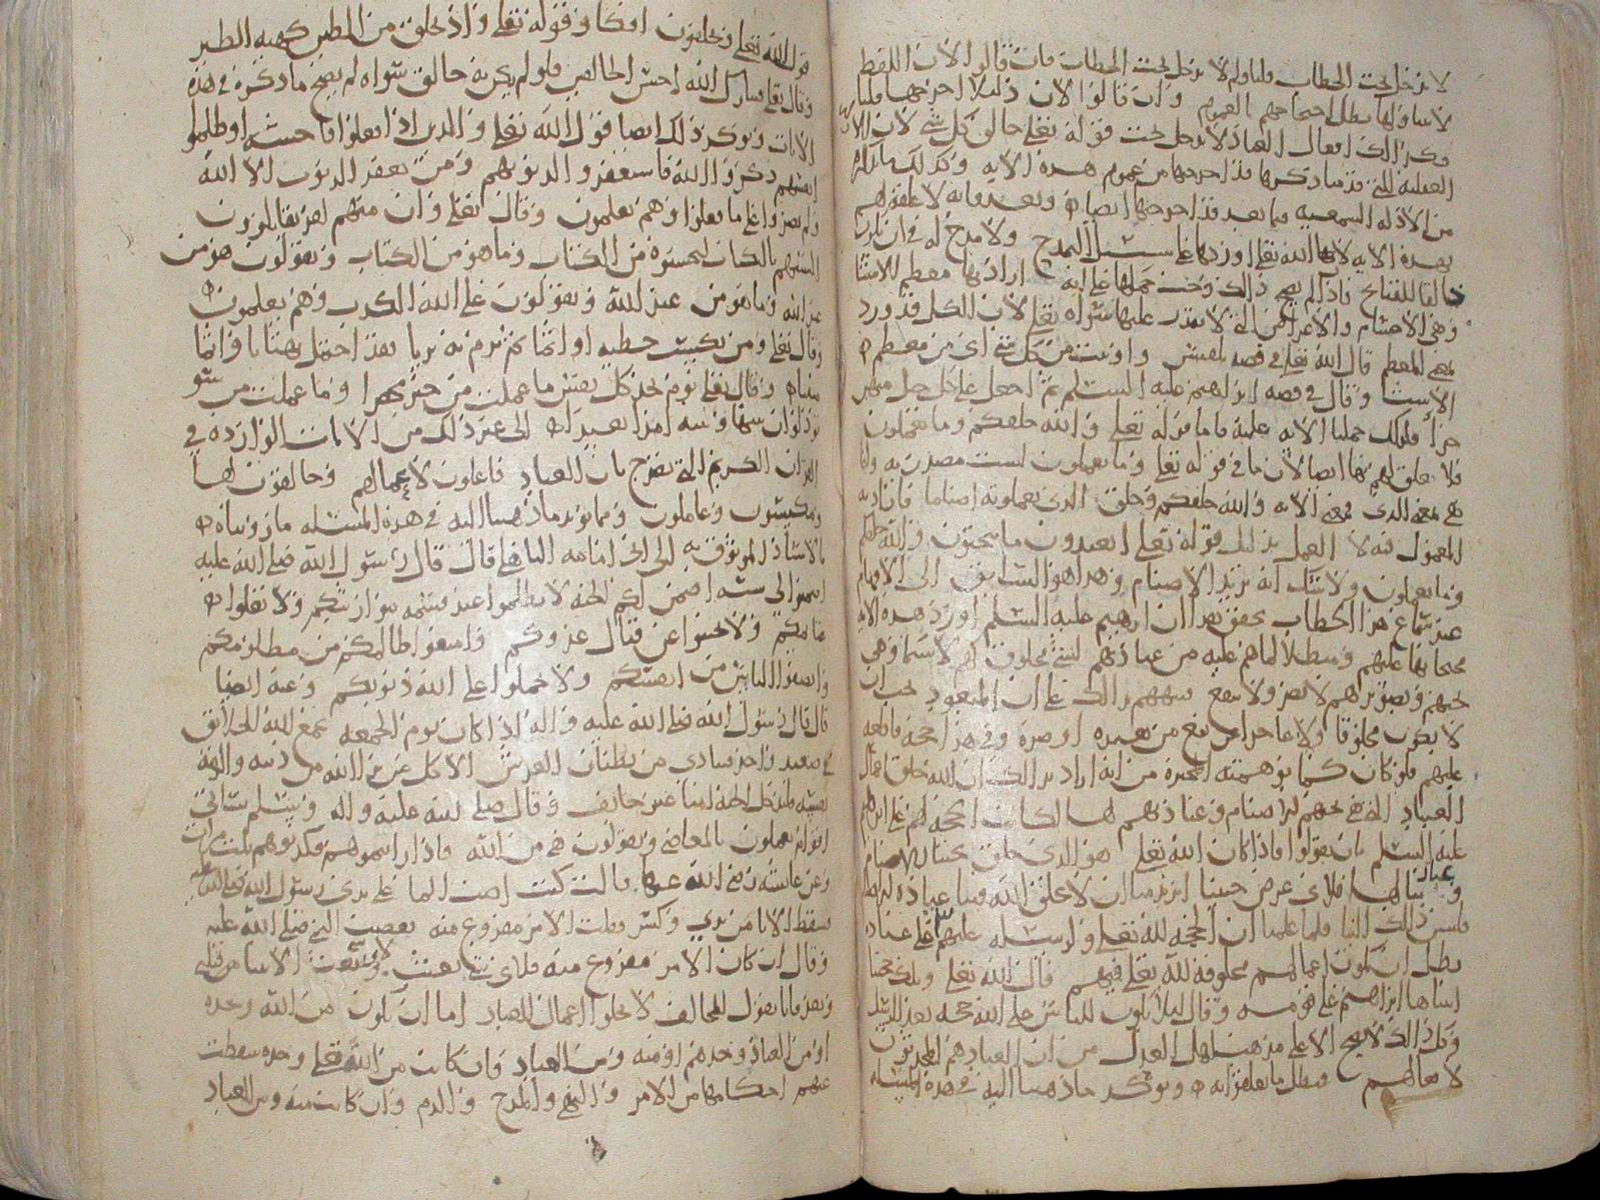 لا يدخل تحت الخطاب فلنا ولم لا يدخل تحت الخطاب فان قالوا لان اللفظ
لا يتناولها بطل احتجاجهم بالعموم وان قالوا لان دليلا اخرجها قلنا
فكذلك افعال العباد لا تدخل تحت قوله تعلى خالق كل شي لان الادلة
العقلية التي قد ذكرها قد اخرجها من عموم هذه الاية وكذلك
من الادلة السمعية فيما بعد قد اخرجها ايضا وبعد فانه لا تعلق لهم
بهذه الاية لان الله تعلى اوردها على سبيل التمدح ولا مدح له في ان يكون
خالقا للقبائح فاذا لم يصح ذلك وجب حملها على انه اراد بها معظم الاشيا
وهي الاجسام والاعراض التي لا يقدر عليها سواه تعلى لان الكل قد ورد
بمعنى المعظم قال الله تعلى في قصة بلقيس واوتيت من كل شي اي من معظم
الاشيا وقال في قصة ابراهيم عليه السلم ثم اجعل على كل جبل منهن
جزا فلذلك حملنا الاية عليه فاما قوله تعلى والله خلقكم وما تعملون
فلا تعلق لهم بها ايضا لان ما في قوله تعلى وما تعملون ليست مصدرية وانما
هي بمعنى الذي فمعنى الاية والله خلقكم وخلق الذي تعملونه اصناما فاراد به
المعمول فيه لا العمل بدليل قوله تعلى اتعبدون ما تنحتون والله خلقكم
وما تعملون ولا شك انه يريد الاصنام وهذا هو السابق الى الافهام
عند سماع هذا الخطاب يحقق هذا ان ابرهيم عليه السلم اورد هذه الاية
محتجا بها عليهم ومبطلا لما هم عليه من عبادتهم لشي مخلوق
نحتهم وتصويرهم لا يضر ولا ينفع فنبههم بذلك على ان المعبود يجب ان
لا يكون مخلوقا ولا عاجزا عن نفع من يعبده او ضره وفي هذا حجة قاطعة
عليهم فلو كان كما توهمته المجبرة من انه اراد بذلك ان الله خلق افعال
العباد التي هي نحتهم للاصنام وعبادتهم لها لكانت الحجة لهم على ابراهيم
عليه السلم بان يقولوا فاذا كان الله تعلى هو الذي خلق نحتنا للاصنام
وعبادتنا لها فلاي غرض جيتنا اتريد منا ان لا يخلق الله فينا عبادة
فليس ذلك الينا فلما علمنا ان الحجة لله تعلى ولرسله عليهم على عباده
بطل ان تكون اعمالهم مخلوقة لله تعلى فيهم قال الله تعلى وتلك حجتنا
اتيناها ابراهيم على قومه وقال ليلا يكون للناس على الله حجة بعد الرسل
وكل ذلك لا يصح الا على مذهب اهل العدل من ان العباد هم المحدثون
لافعالهم فبطل ما تعلقوا به ويوكد ما ذهبنا اليه في هذه المسئلة
قول الله تعلى وتخلقون افكا وقوله تعلى واذ تخلق من الطين كهيئة الطير
وقال تعلى فتبارك الله احسن الخالقين فلو لم يكن ثم خالق سواه لم يصح ما ذكره في هذه
الايات ويوكد ذلك ايضا قول الله تعلى والذين اذا فعلوا فاحشة او ظلموا
انفسهم ذكروا الله فاستغفروا لذنوبهم ومن يغفر الذنوب الا الله
ولم يصروا على ما فعلوا وهم يعلمون وقال تعلى وان منهم لفريقا يلوون
السنتهم بالكتاب لتحسبوه من الكتاب وما هو من الكتاب ويقولون هو من
عند الله وما هو من عند الله ويقولون على الله الكذب وهم يعلمون
وقال تعلى ومن يكسب خطية او اثما ثم يرم به بريا فقد احتمل بهتانا واثما
مبينا وقال تعلى يوم تجد كل نفس ما عملت من خير محضرا وما عملت من سو
تود لو ان بينها وبينه امدا بعيدا الى غير ذلك من الايات الواردة في
القران الكريم التي تصرح بان العباد فاعلون لاعمالهم وخالقون لها
ومكتسبون وعاملون ومما يويد ما ذهبنا اليه في هذه المسئلة ما رويناه
بالاسناد الموثوق به الى ابي امامة الباهلي قال قال رسول الله صلى الله عليه
اضمنوا لي ستة اضمن لكم الجنة لا تظلموا عند قسمة مواريثكم ولا تغلوا
غنايمكم ولا تجبنوا عن قتال عدوكم وامنعوا ظالمكم من مظلومكم
وانصفوا الناس من انفسكم ولا تحملوا على الله ذنوبكم وعنه ايضا
قال قال رسول الله صلى الله عليه واله اذا كان يوم الجمعة يجمع الله الخلائق
في صعيد واحد فينادي من بطنان العرش الا كل من بري الله من ذنبه والزمه
نفسه فليدخل الجنة امنا غير خائف وقال صلى الله عليه واله وسلم سياتي
اقوام يعملون بالمعاصي ويقولون هي من الله فاذا رايتموهم فكذبوهم ثلث مرات
وعن عائشة رضي الله عنها قالت كنت اصب الما على يدي رسول الله صلى الله عليه
فسقط الانا من يدي وكسر فقلت الامر مفروغ منه فغضب النبي صلى الله عليه
وقال ان كان الامر مفروغ منه فلاي شي بعثت ولاي شي بعث الانبيا من قبلي
وبعد فانا نقول للمخالف لا تخلوا اعمال العباد اما ان تكون من الله وحده
او من العباد وحدهم او منه ومن العباد فان كانت من الله تعلى وحده سقطت
عنهم احكامها من الامر والنهي والمدح والذم وان كانت منه ومن العباد